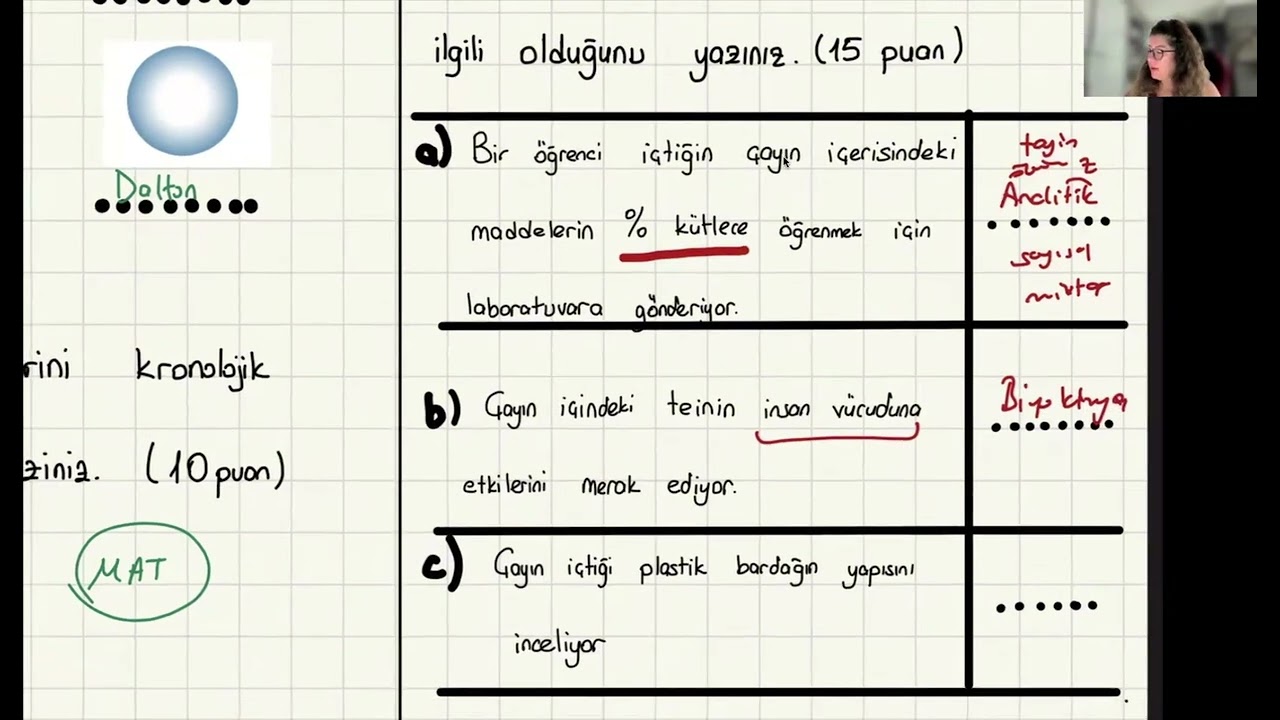 Dalton
rini kronolojik
ziniz. (10 puan)
MAT
ilgili olduğunu yazınız. (15 puan)
a) Bir öğrenci içtiğin çayın içerisindeki
maddelerin % kütlece öğrenmek için
laboratuvara gönderiyor.
tayin
Analitik
sayısal
miktar
b) Çayın içindeki teinin insan vücuduna
etkilerini merak ediyor.
Biyokimya
c) Çayın içtiği plastik bardağın yapısını
inceliyor